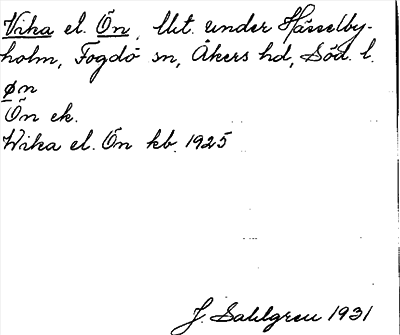 Vika el. Ön, lht. under Hässelby-
holm, Fogdö sn, Åkers hd, Söd. l.
øn
Ön ek.
Wika el. Ön kb. 1925
J. Sahlgren 1931